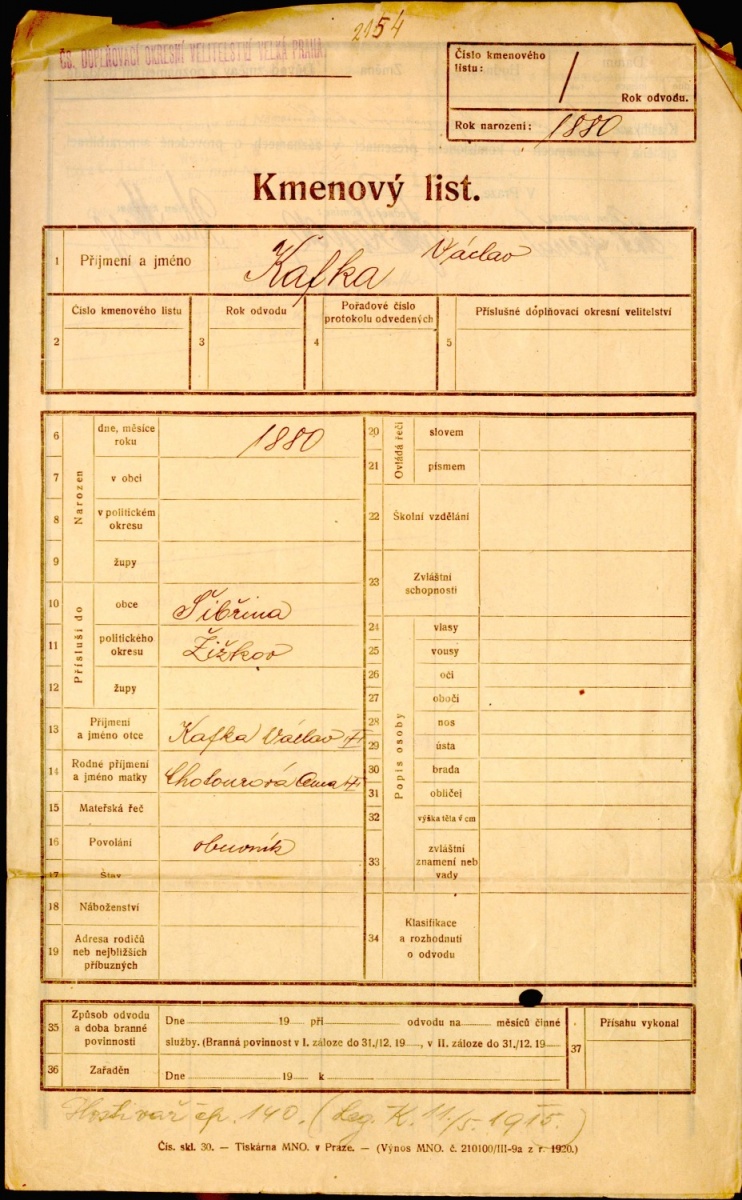 2154
ČS. DOPLŇOVACÍ OKRESNÍ VELITELSTVÍ VELKÁ PRAHA.
Číslo kmenového
listu:
Rok odvodu.
Rok narození: 1880
Kmenový list.
1 Příjmení a jméno Kafka Václav
2 Číslo kmenového listu
3 Rok odvodu
4 Pořadové číslo
protokolu odvedených
5 Příslušné doplňovací okresní velitelství
Narozen
6 dne, měsíce
roku 1880
7 v obci
8 v politickém
okresu
9 župy
Přísluší do
10 obce Šibřina
11 politického
okresu Žižkov
12 župy
13 Příjmení
a jméno otce Kafka Václav
14 Rodné příjmení
a jméno matky Chotourová Anna
15 Mateřská řeč
16 Povolání obuvník
17 Stav
18 Náboženství
19 Adresa rodičů
neb nejbližších
příbuzných
Ovládá řeči
20 slovem
21 písmem
22 Školní vzdělání
23 Zvláštní
schopnosti
Popis osoby
24 vlasy
25 vousy
26 oči
27 obočí
28 nos
29 ústa
30 brada
31 obličej
32 výška těla v cm
33 zvláštní
znamení neb
vady
34 Klasifikace
a rozhodnutí
o odvodu
35 Způsob odvodu
a doba branné
povinnosti
Dne 19 při odvodu na měsíců činné
služby. (Branná povinnost v I. záloze do 31./12. 19 , v II. záloze do 31./12. 19
36 Zařaděn
Dne 19 k
37 Přísahu vykonal
Hostivař čp. 140. (Leg. K. 11/5. 1915.)
Čís. skl. 30. — Tiskárna MNO. v Praze. — (Výnos MNO. č. 210100/III-9a z r. 1920.)